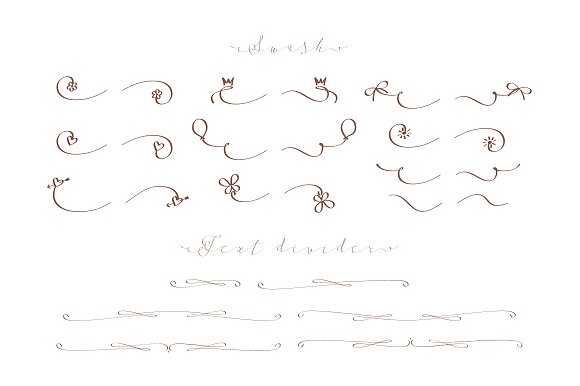 Swash
Text divider